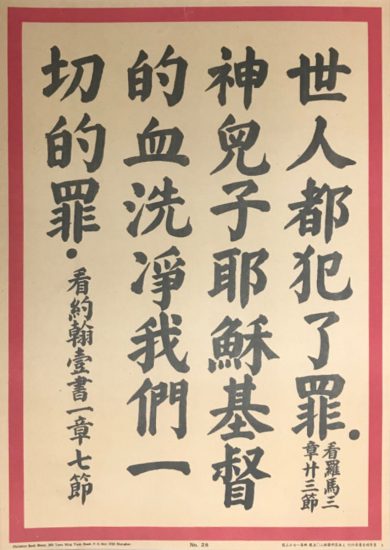 世人都犯了罪.
看羅馬三
章廿三節
神兒子耶穌基督
的血洗凈我們一
切的罪.
看約翰壹書一章七節
No. 26